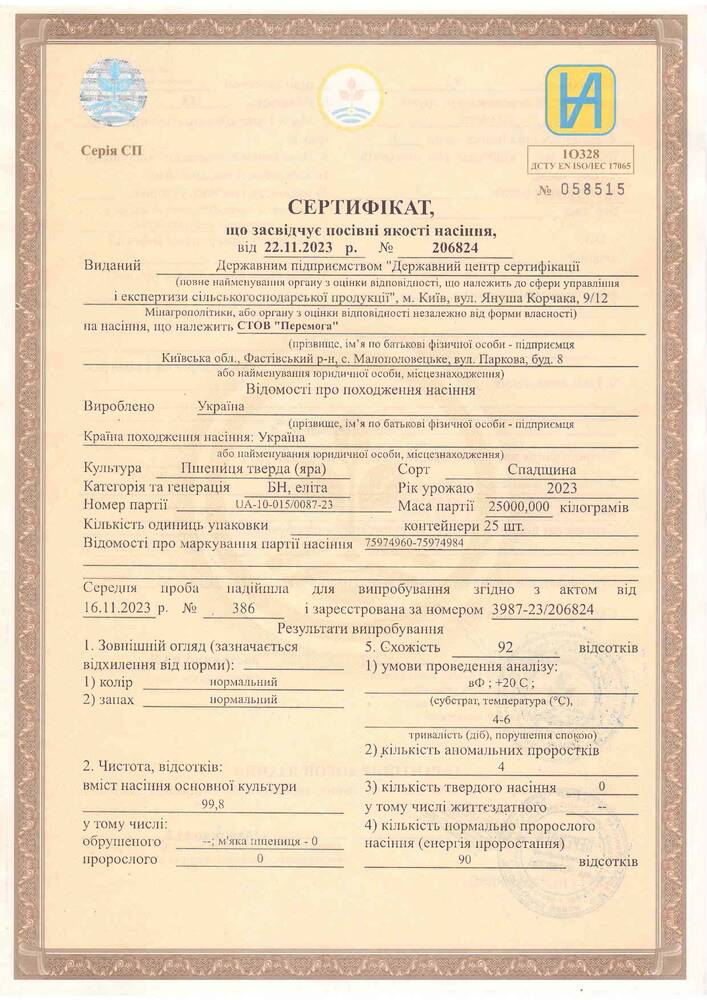 Серія СП
1О328
ДСТУ EN ISO/IEC 17065
№ 058515
СЕРТИФІКАТ,
що засвідчує посівні якості насіння,
від 22.11.2023 р. № 206824
Виданий Державним підприємством "Державний центр сертифікації
(повне найменування органу з оцінки відповідності, що належить до сфери управління
і експертизи сільськогосподарської продукції", м. Київ, вул. Януша Корчака, 9/12
Мінагрополітики, або органу з оцінки відповідності незалежно від форми власності)
на насіння, що належить СТОВ "Перемога"
(прізвище, ім’я по батькові фізичної особи - підприємця
Київська обл., Фастівський р-н, с. Малополовецьке, вул. Паркова, буд. 8
або найменування юридичної особи, місцезнаходження)
Відомості про походження насіння
Вироблено Україна
(прізвище, ім’я по батькові фізичної особи - підприємця
Країна походження насіння: Україна
або найменування юридичної особи, місцезнаходження)
Культура Пшениця тверда (яра) Сорт Спадщина
Категорія та генерація БН, еліта Рік урожаю 2023
Номер партії UA-10-015/0087-23 Маса партії 25000,000 кілограмів
Кількість одиниць упаковки контейнери 25 шт.
Відомості про маркування партії насіння 75974960-75974984
Середня проба надійшла для випробування згідно з актом від
16.11.2023 р. № 386 і зареєстрована за номером 3987-23/206824
Результати випробування
1. Зовнішній огляд (зазначається
відхилення від норми):
1) колір нормальний
2) запах нормальний
2. Чистота, відсотків:
вміст насіння основної культури
99,8
у тому числі:
обрушеного --; м'яка пшениця - 0
пророслого 0
5. Схожість 92 відсотків
1) умови проведення аналізу:
вФ ; +20 С ;
(субстрат, температура (°С),
4-6
тривалість (діб), порушення спокою)
2) кількість аномальних проростків
4
3) кількість твердого насіння 0
у тому числі життєздатного --
4) кількість нормально пророслого
насіння (енергія проростання)
90 відсотків